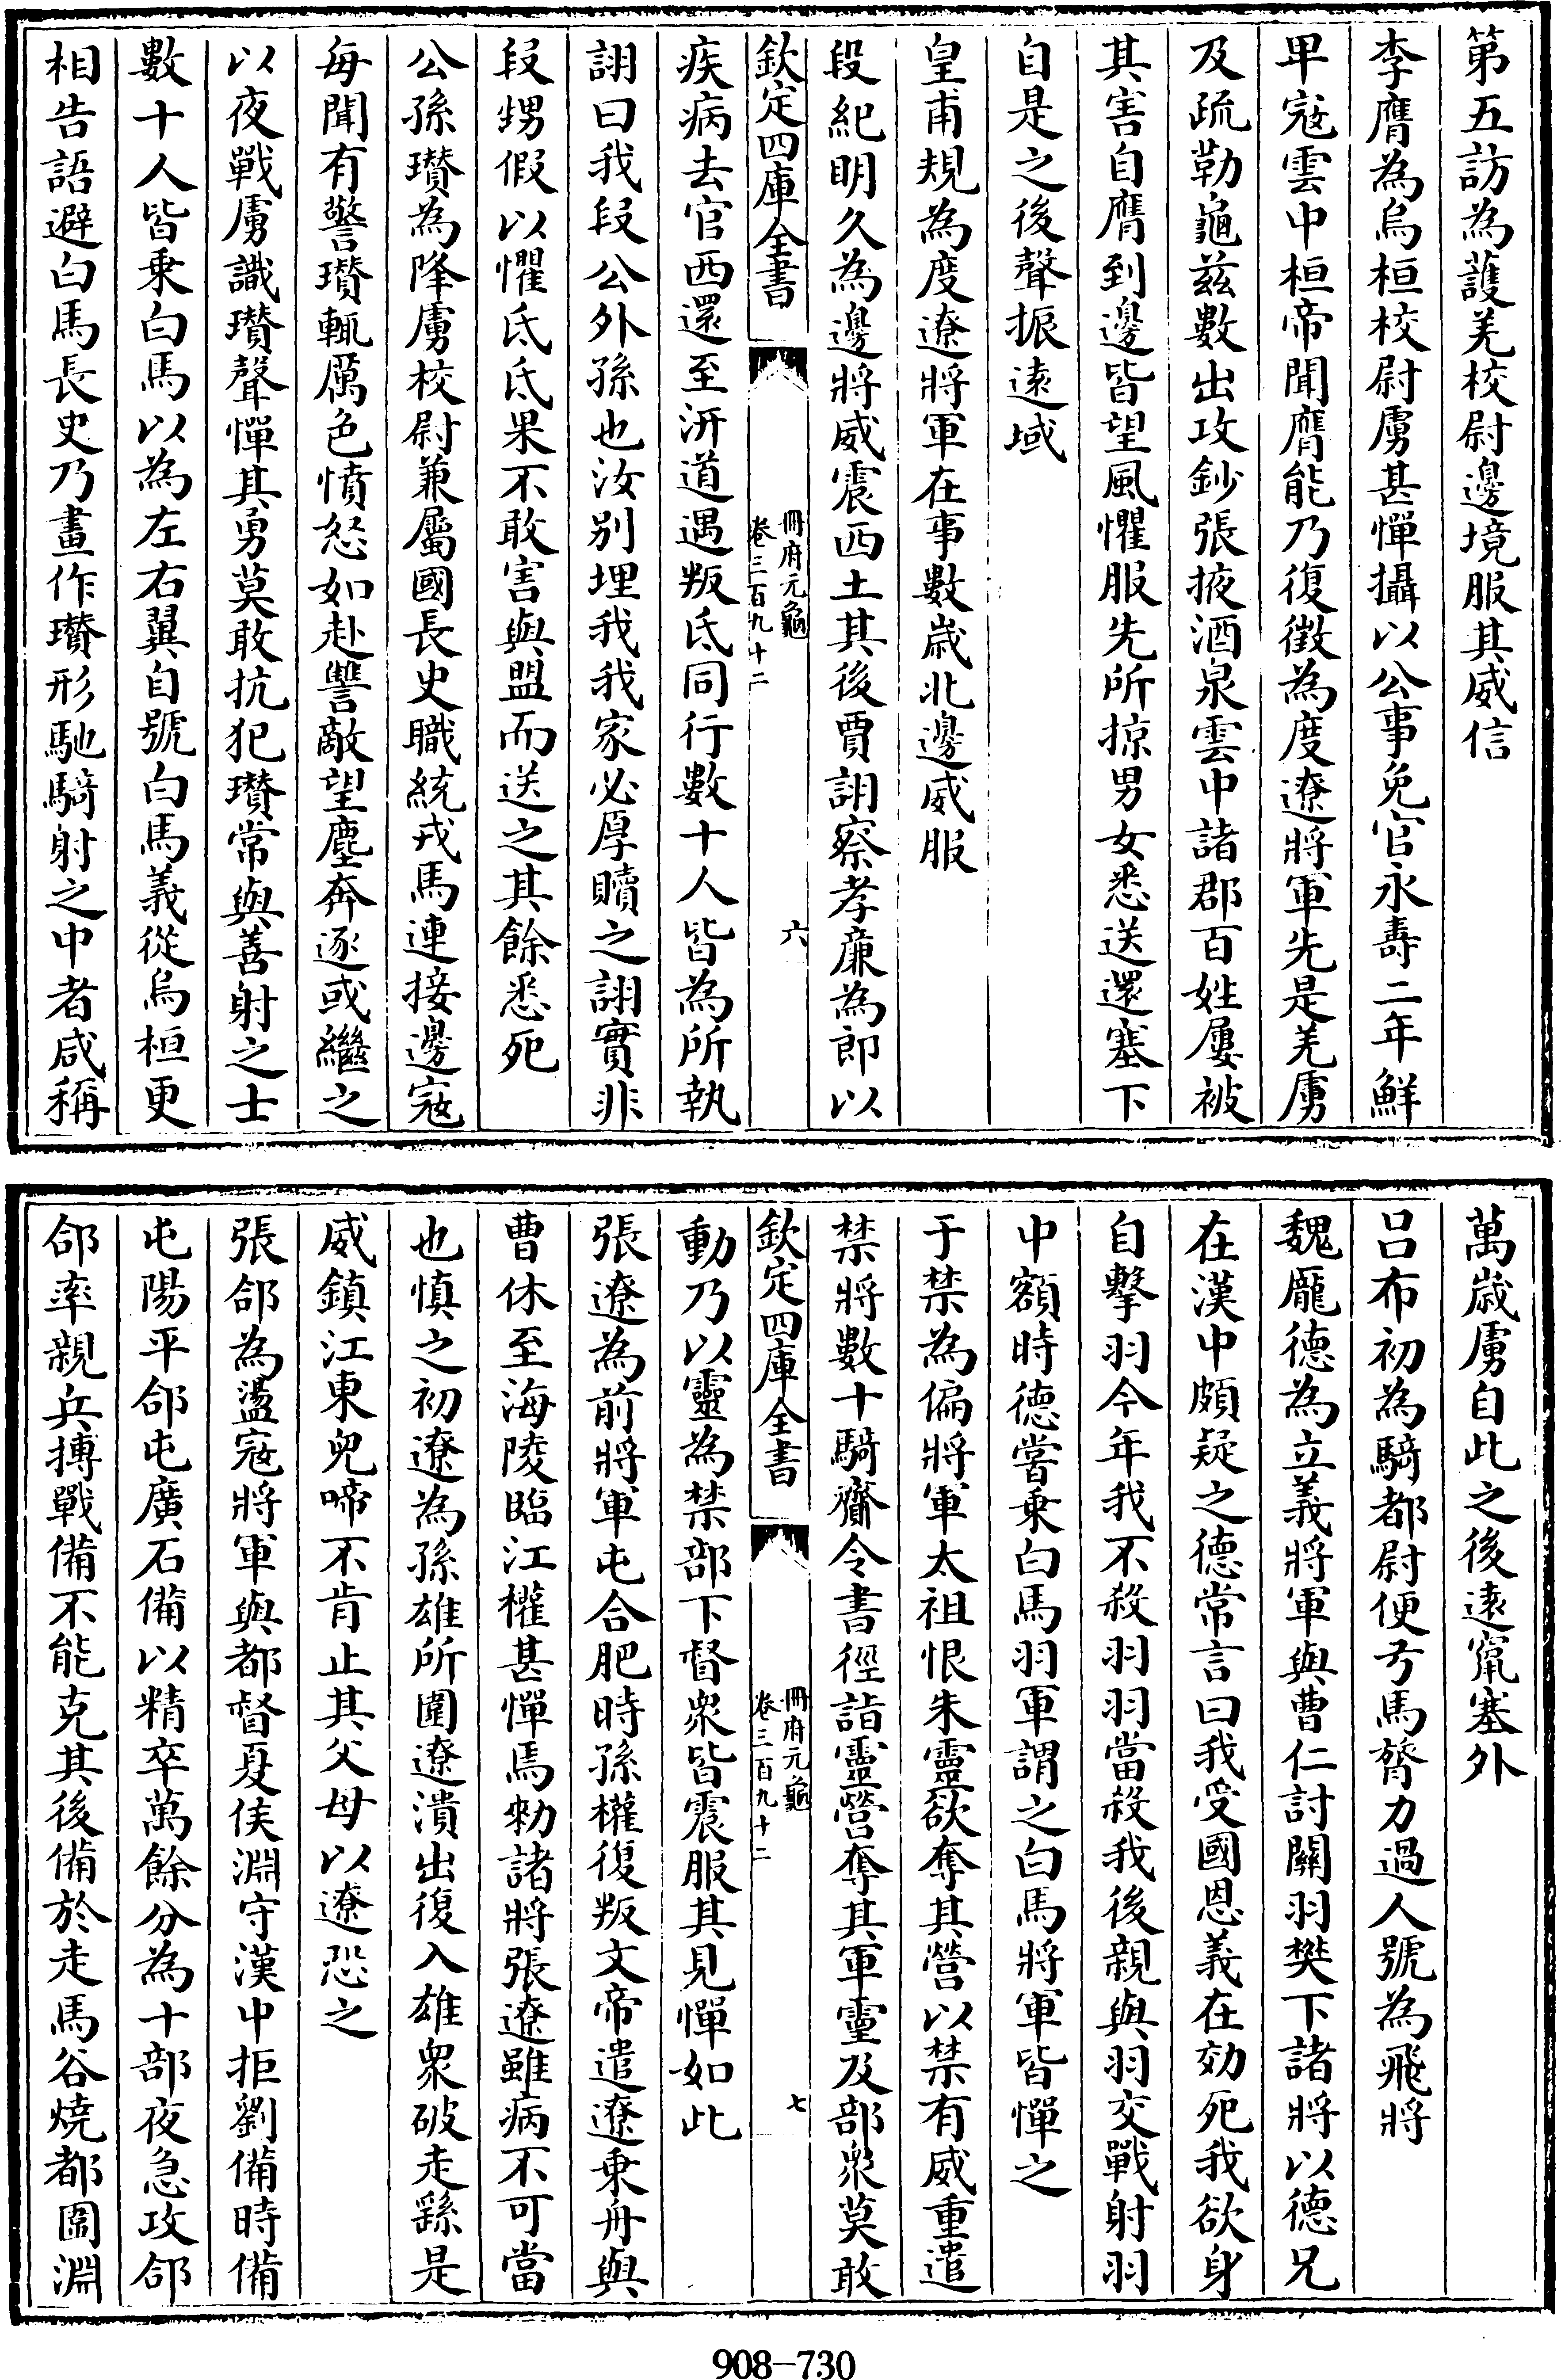 第五訪為護羌校尉邊境服其威信
李膺為烏桓校尉虜甚憚攝以公事免官永壽二年鮮
卑寇雲中桓帝聞膺能乃復徵為度遼將軍先是羌虜
及疏勒龜兹數出攻鈔張掖酒泉雲中諸郡百姓屢被
其害自膺到邊皆望風懼服先所掠男女悉送還塞下
自是之後聲振遠域
皇甫規為度遼將軍在事數歲北邊威服
段紀明久為邊將威震西土其後賈詡察孝廉為郎以
欽定四庫全書
冊府元龜
卷三百九十二
六
疾病去官西還至汧道遇叛氐同行數十人皆為所執
詡曰我段公外孫也汝别埋我我家必厚贖之詡實非
段甥假以懼氐氐果不敢害與盟而送之其餘悉死
公孫瓚為降虜校尉兼屬國長史職統戎馬連接邊寇
每聞有警瓚輒厲色憤怒如赴讐敵望塵奔逐或繼之
以夜戰虜識瓚聲憚其勇莫敢抗犯瓚常與善射之士
數十人皆乘白馬以為左右翼自號白馬義從烏桓更
相告語避白馬長史乃畫作瓚形馳騎射之中者咸稱
萬歲虜自此之後遠竄塞外
吕布初為騎都尉便弓馬膂力過人號為飛將
魏龎德為立義將軍與曹仁討關羽樊下諸將以德兄
在漢中頗疑之德常言曰我受國恩義在効死我欲身
自擊羽今年我不殺羽羽當殺我後親與羽交戰射羽
中額時德嘗乘白馬羽軍謂之白馬將軍皆憚之
于禁為偏將軍太祖恨朱靈欲奪其營以禁有威重遣
禁將數十騎齎令書徑詣靈營奪其軍靈及部衆莫敢
欽定四庫全書
冊府元龜
卷三百九十二
七
動乃以靈為禁部下督衆皆震服其見憚如此
張遼為前將軍屯合肥時孫權復叛文帝遣遼乗舟與
曹休至海陵臨江權甚憚焉勑諸將張遼雖病不可當
也慎之初遼為孫雄所圍遼潰出復入雄衆破走繇是
威鎮江東兒啼不肯止其父母以遼恐之
張郃為盪寇將軍與都督夏侯淵守漢中拒劉備時備
屯陽平郃屯廣石備以精卒萬餘分為十部夜急攻郃
郃率親兵搏戰備不能克其後備於走馬谷燒都圍淵
908-730